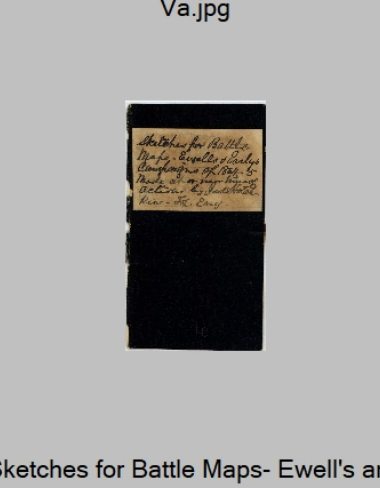 Va.jpg
Sketches for Battle
Maps - Ewell's & Early's
Campaigns of 1864-5
Made at or near time of
action by Jed Hotch
kiss - Top. Eng.
Sketches for Battle Maps- Ewell's an